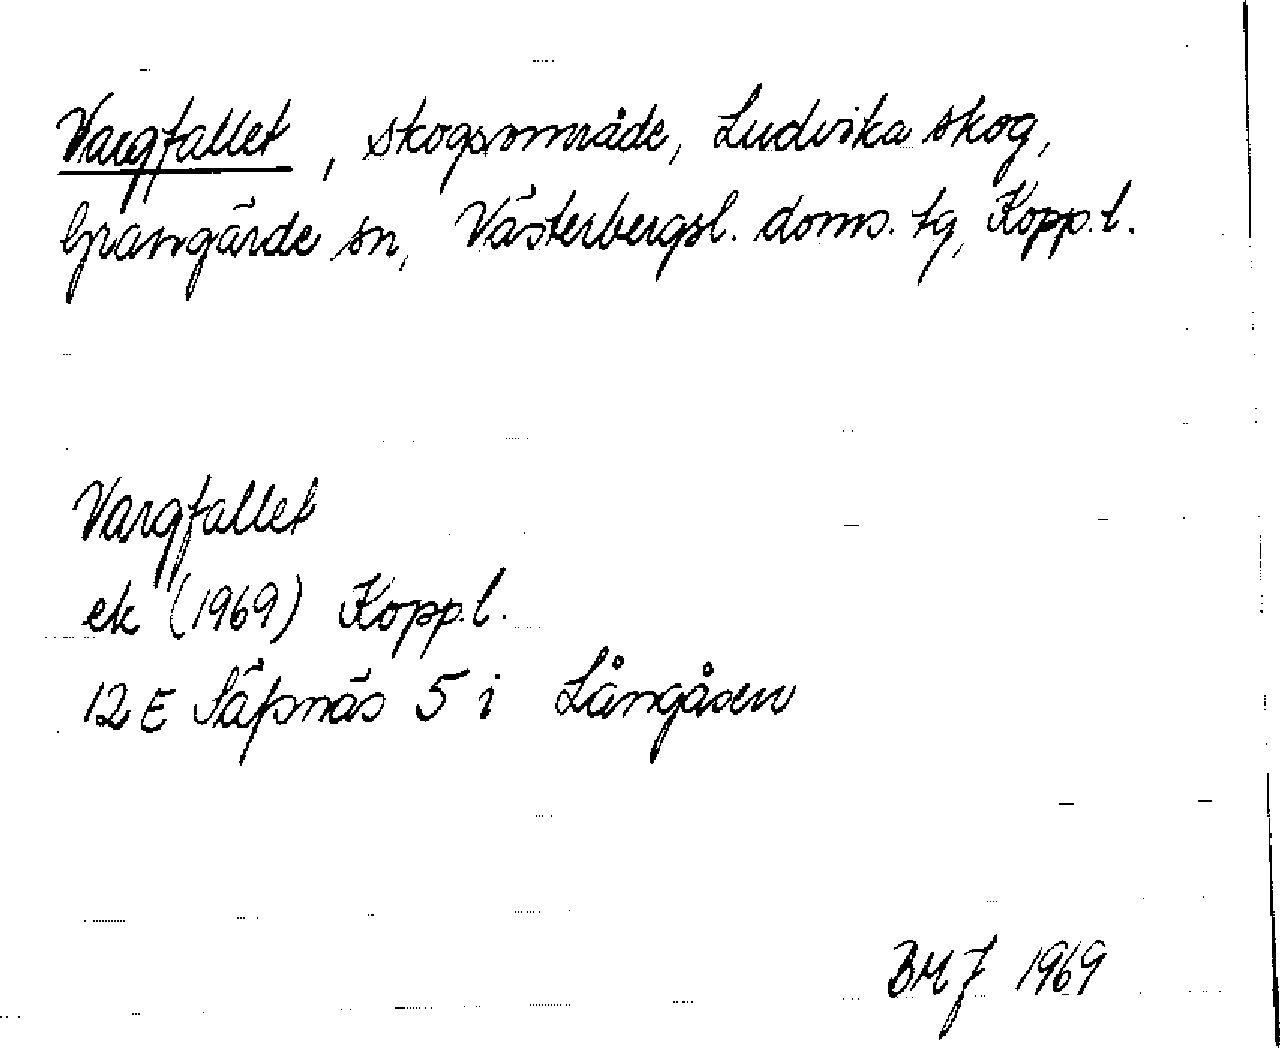 Vargfallet, skogsområde, Ludvika skog,
Grangärde sn, Västerbergsl. doms. tg, Kopp.l.
Vargfallet
ek (1969) Kopp.l.
12 E Säfsnäs 5 i Långåsen
BMJ 1969